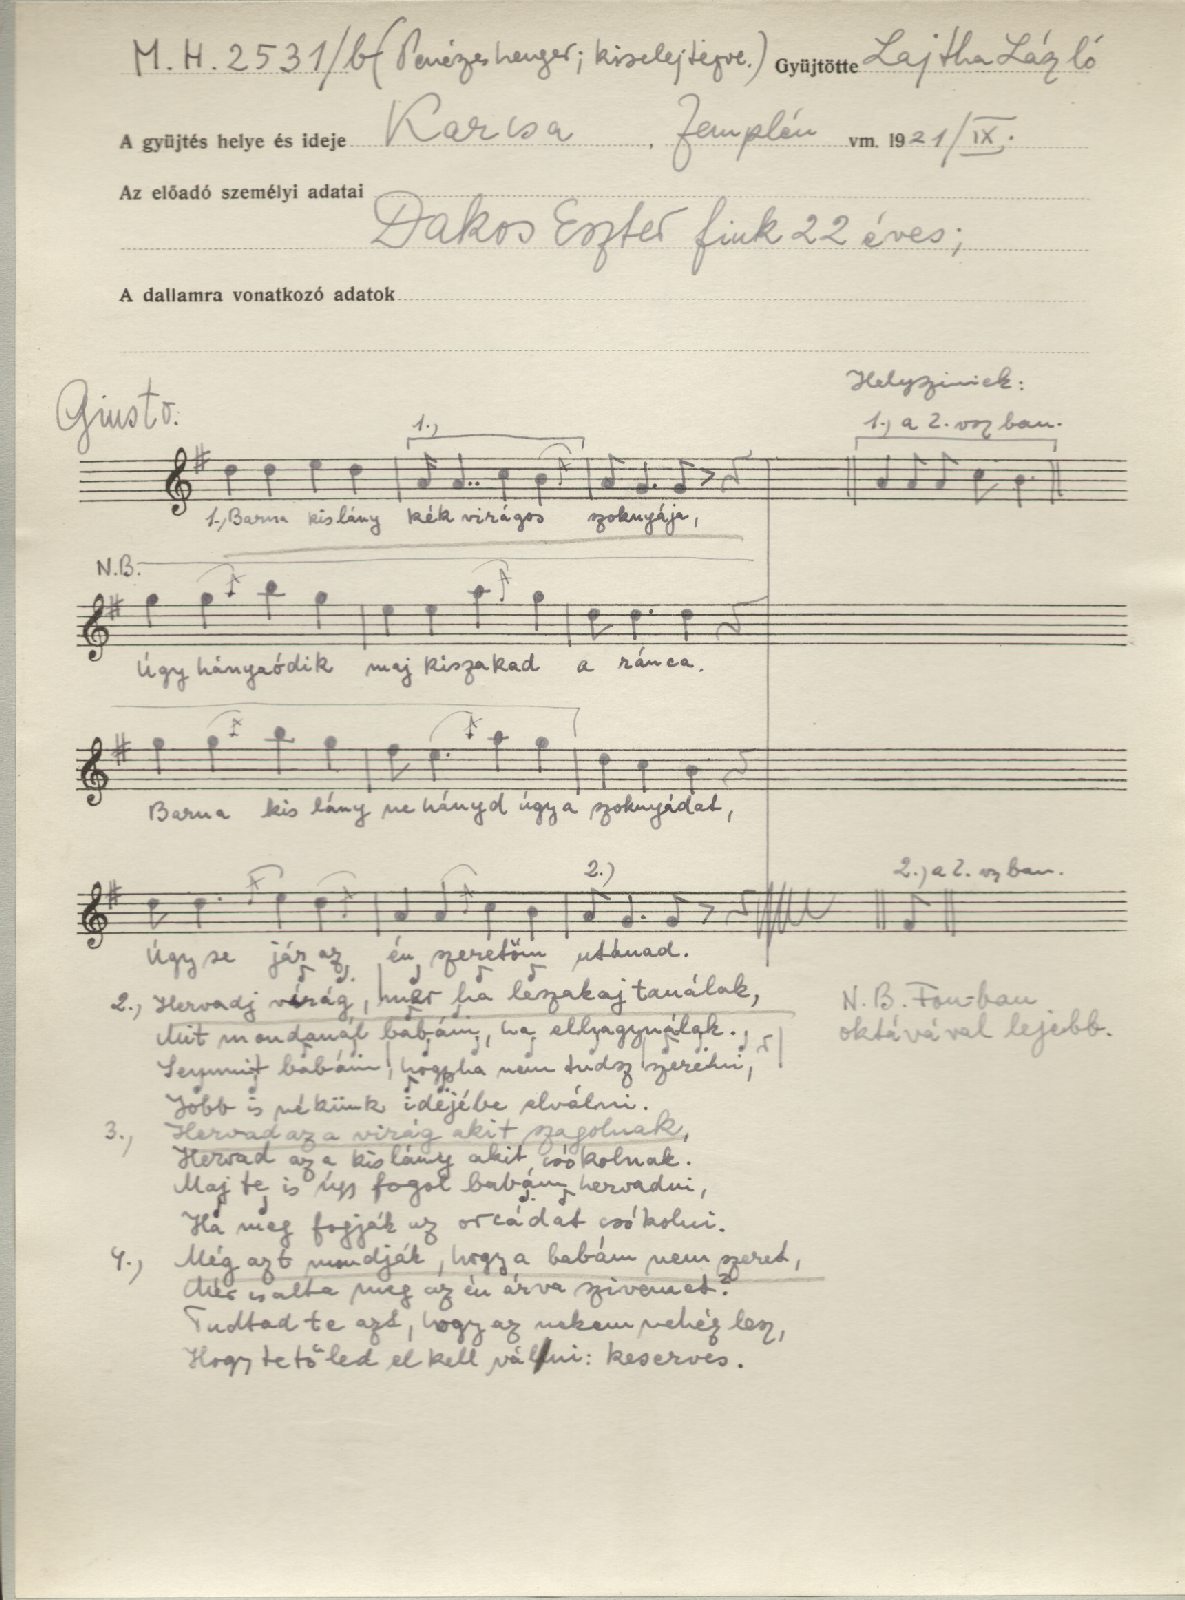 M. H. 2531/b (Penészes henger; kiselejtezve.) Gyüjtötte Lajtha László
A gyüjtés helye és ideje Karcsa, Zemplén vm. 1921/IX.
Az előadó személyi adatai
Dakos Eszter 22 éves;
A dallamra vonatkozó adatok
Giusto.
Helyszíniek:
1.,
1., a 2. vsz ban.
1., Barna kislány kék virágos szoknyája,
N.B.
Úgy hányaódik maj kiszakad a ránca.
Barna kis lány ne hányd úgy a szoknyádat,
2.)
2., a 2. vsz ban.
Úgy se jár az én szeretőm utánad.
2., Hervadj virág, mer ha leszakajtanálak,
Mit mondanál babám, ha elhagynálak.
Semmit babám, hogyha nem tudsz szeretni,
Jobb is nékünk idejébe elválni.
N.B. Fon-ban
oktávával lejebb.
3., Hervad az a virág akit szagolnak,
Hervad az a kislány akit csókolnak.
Maj te is úgy fogol babám hervadni,
Ha meg fogják az orcádat csókolni.
4., Még azt mondják, hogy a babám nem szeret,
Mér csalta meg az én árva szivemet?
Tudtad te azt, hogy az nekem nehéz lesz,
Hogy tetőled el kell válni: keserves.